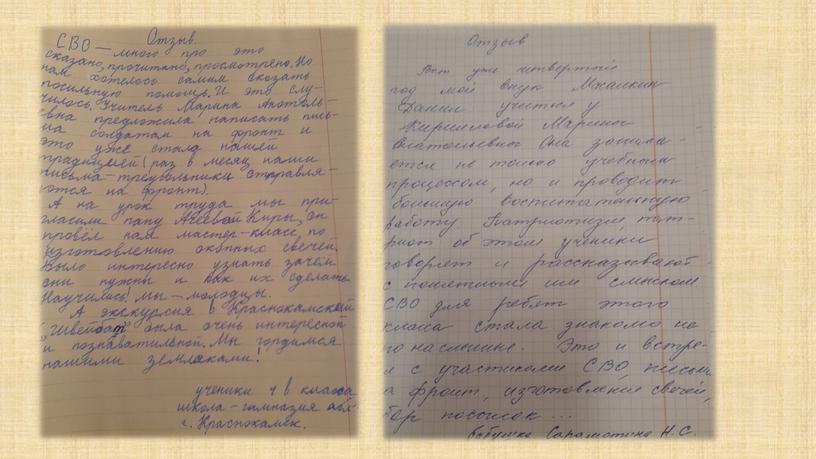 Отзыв
СВО — много про это
сказано, прочитано, просмотрено. Но
нам хотелось самим оказать
посильную помощь. И это слу-
чилось. Учитель Марина Анатоль-
евна предложила написать пись-
ма солдатам на фронт и
это уже стало нашей
традицией (раз в месяц наши
письма-треугольники отправля-
ются на фронт).
А на урок труда мы при-
гласили папу Агеевой Киры, он
провёл нам мастер-класс, по
изготовлению окопных свечей.
Было интересно узнать зачем
они нужны и как их сделать
Научились! Мы – молодцы.
А экскурсия в Краснокамский
"Швейбат" была очень интересной
и познавательной. Мы гордимся
нашими земляками!
ученики 4 в класса
школа-гимназия
г. Краснокамск.
Отзыв
Вот уже четвертый
год мой внук
Данил учится у
Кирилловой Марины
Анатольевны Она занима-
ется не только учебным
процессом, но и проводит
большую воспитательную
работу Патриотизм, пат-
риот об этом ученики
говорят и рассказывают
с понятным им смыслом
СВО для ребят этого
класса стала знакомо не
по наслышке. Это и встре-
и с участниками СВО, письма
а фронт, изготовление свечей,
бор посылок ...
бабушка Н.С.